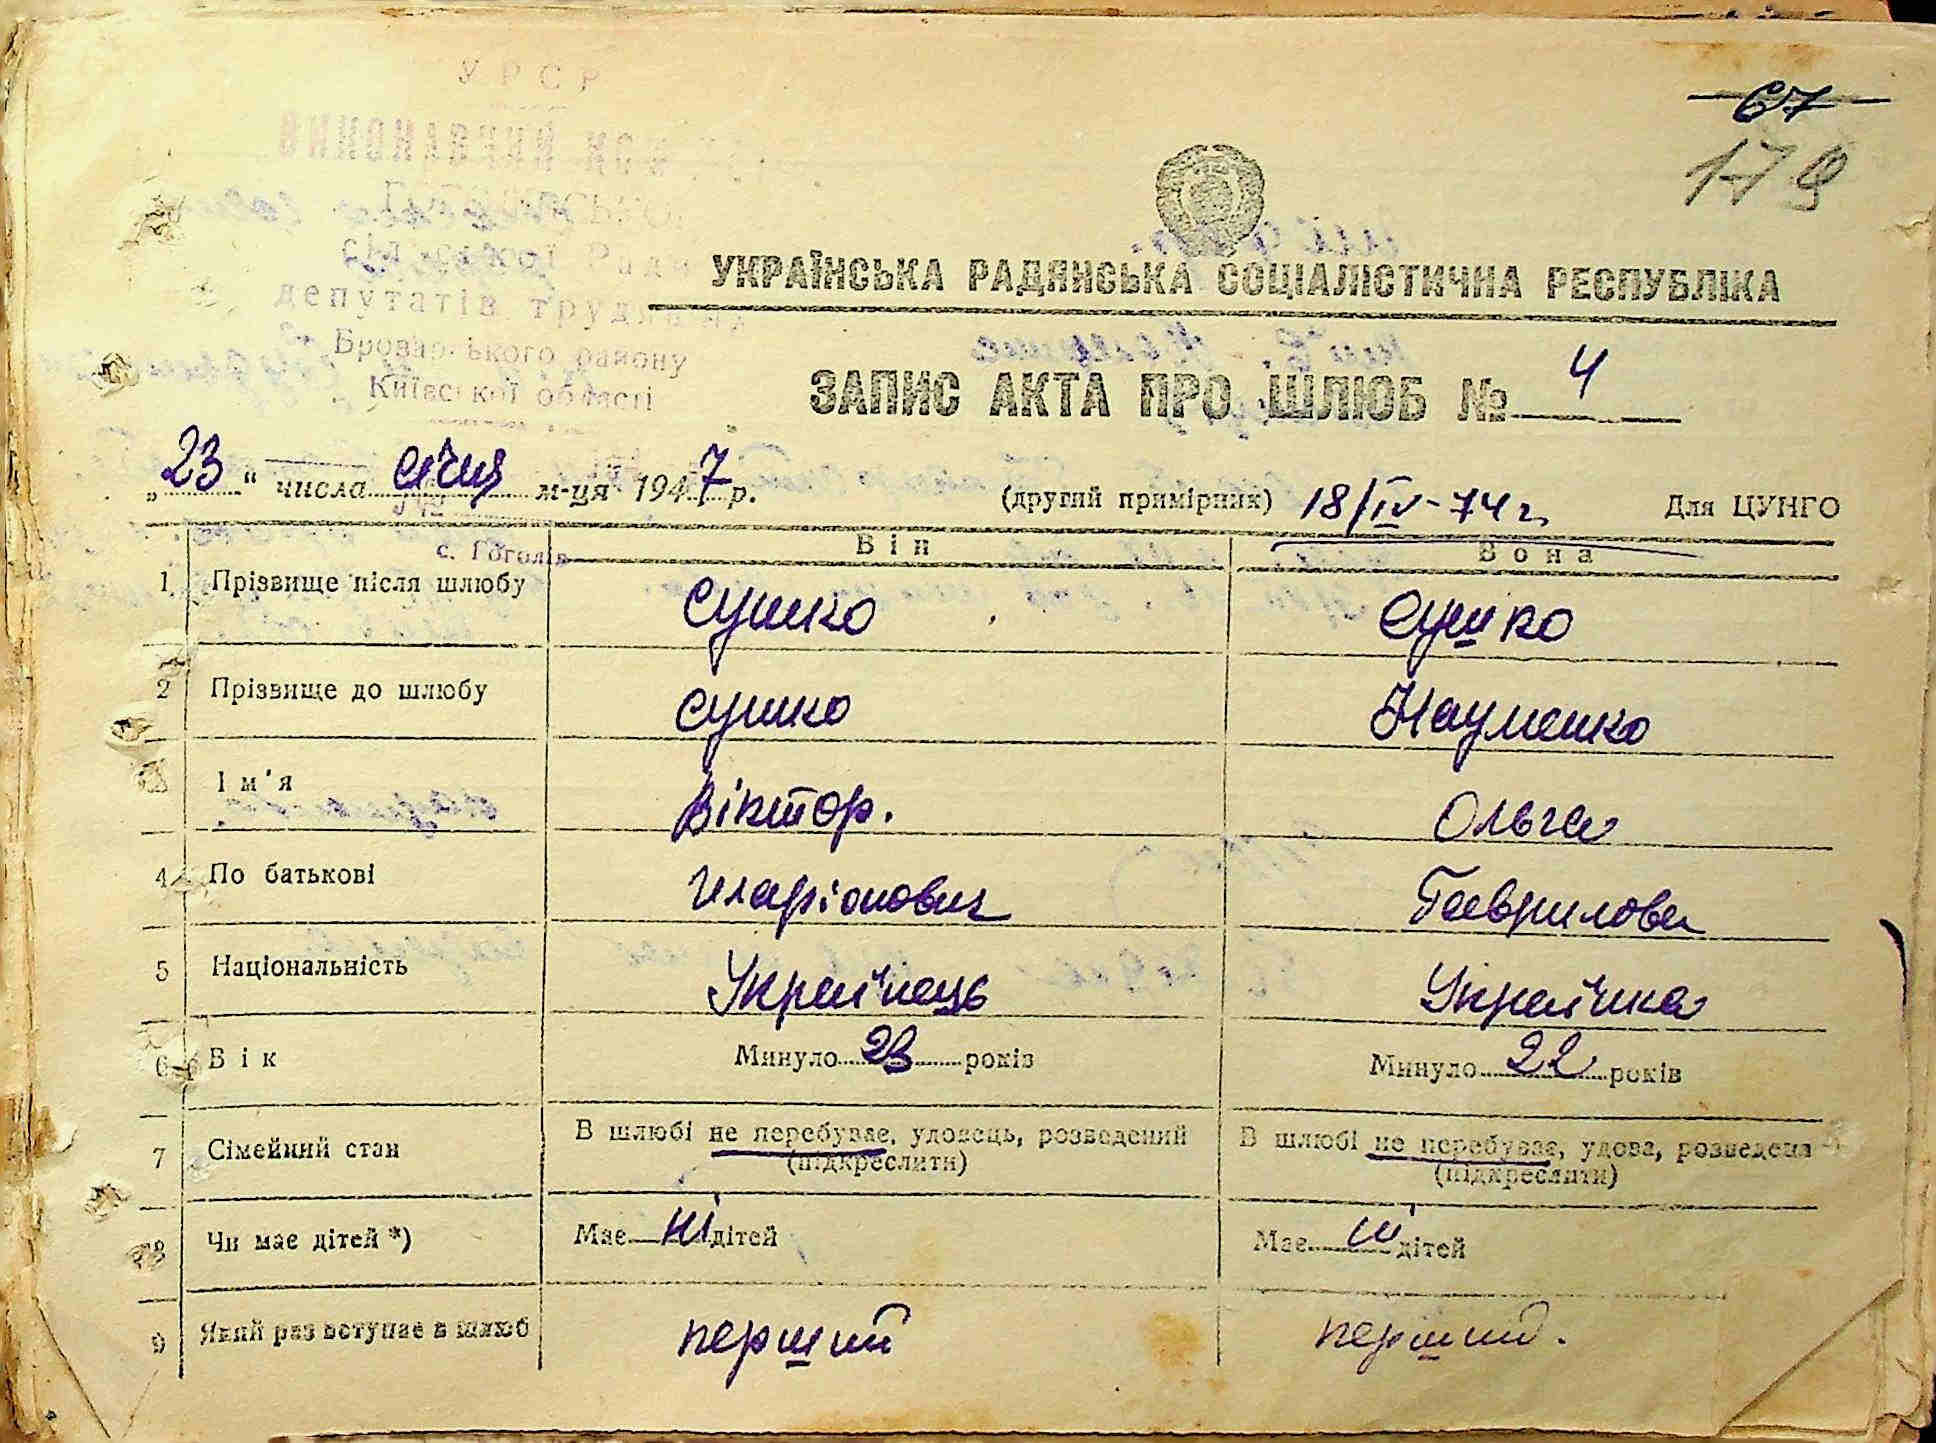 УРСР
67
179
депутатів трудящих
Броварського району
Київської області
УКРАЇНСЬКА РАДЯНСЬКА СОЦІАЛІСТИЧНА РЕСПУБЛІКА
ЗАПИС АКТА ПРО ШЛЮБ № 4
„23“ числа січня м-ця 1947 р. (другий примірник) 18/IV-74 г. Для ЦУНГО
с. Гоголів
Він Вона
1 Прізвище після шлюбу Сушко Сушко
2 Прізвище до шлюбу Сушко Науменко
Ім'я Віктор. Ольга
4 По батькові Іларіонович Гаврилова
5 Національність Українець Українка
6 Вік Минуло 23 років Минуло 22 років
7 Сімейний стан В шлюбі не перебуває, удовець, розведений В шлюбі не перебуває, удова, розведена
(підкреслити) (підкреслити)
8 Чи має дітей *) Має ні дітей Має ні дітей
9 Який раз вступає в шлюб перший перший.